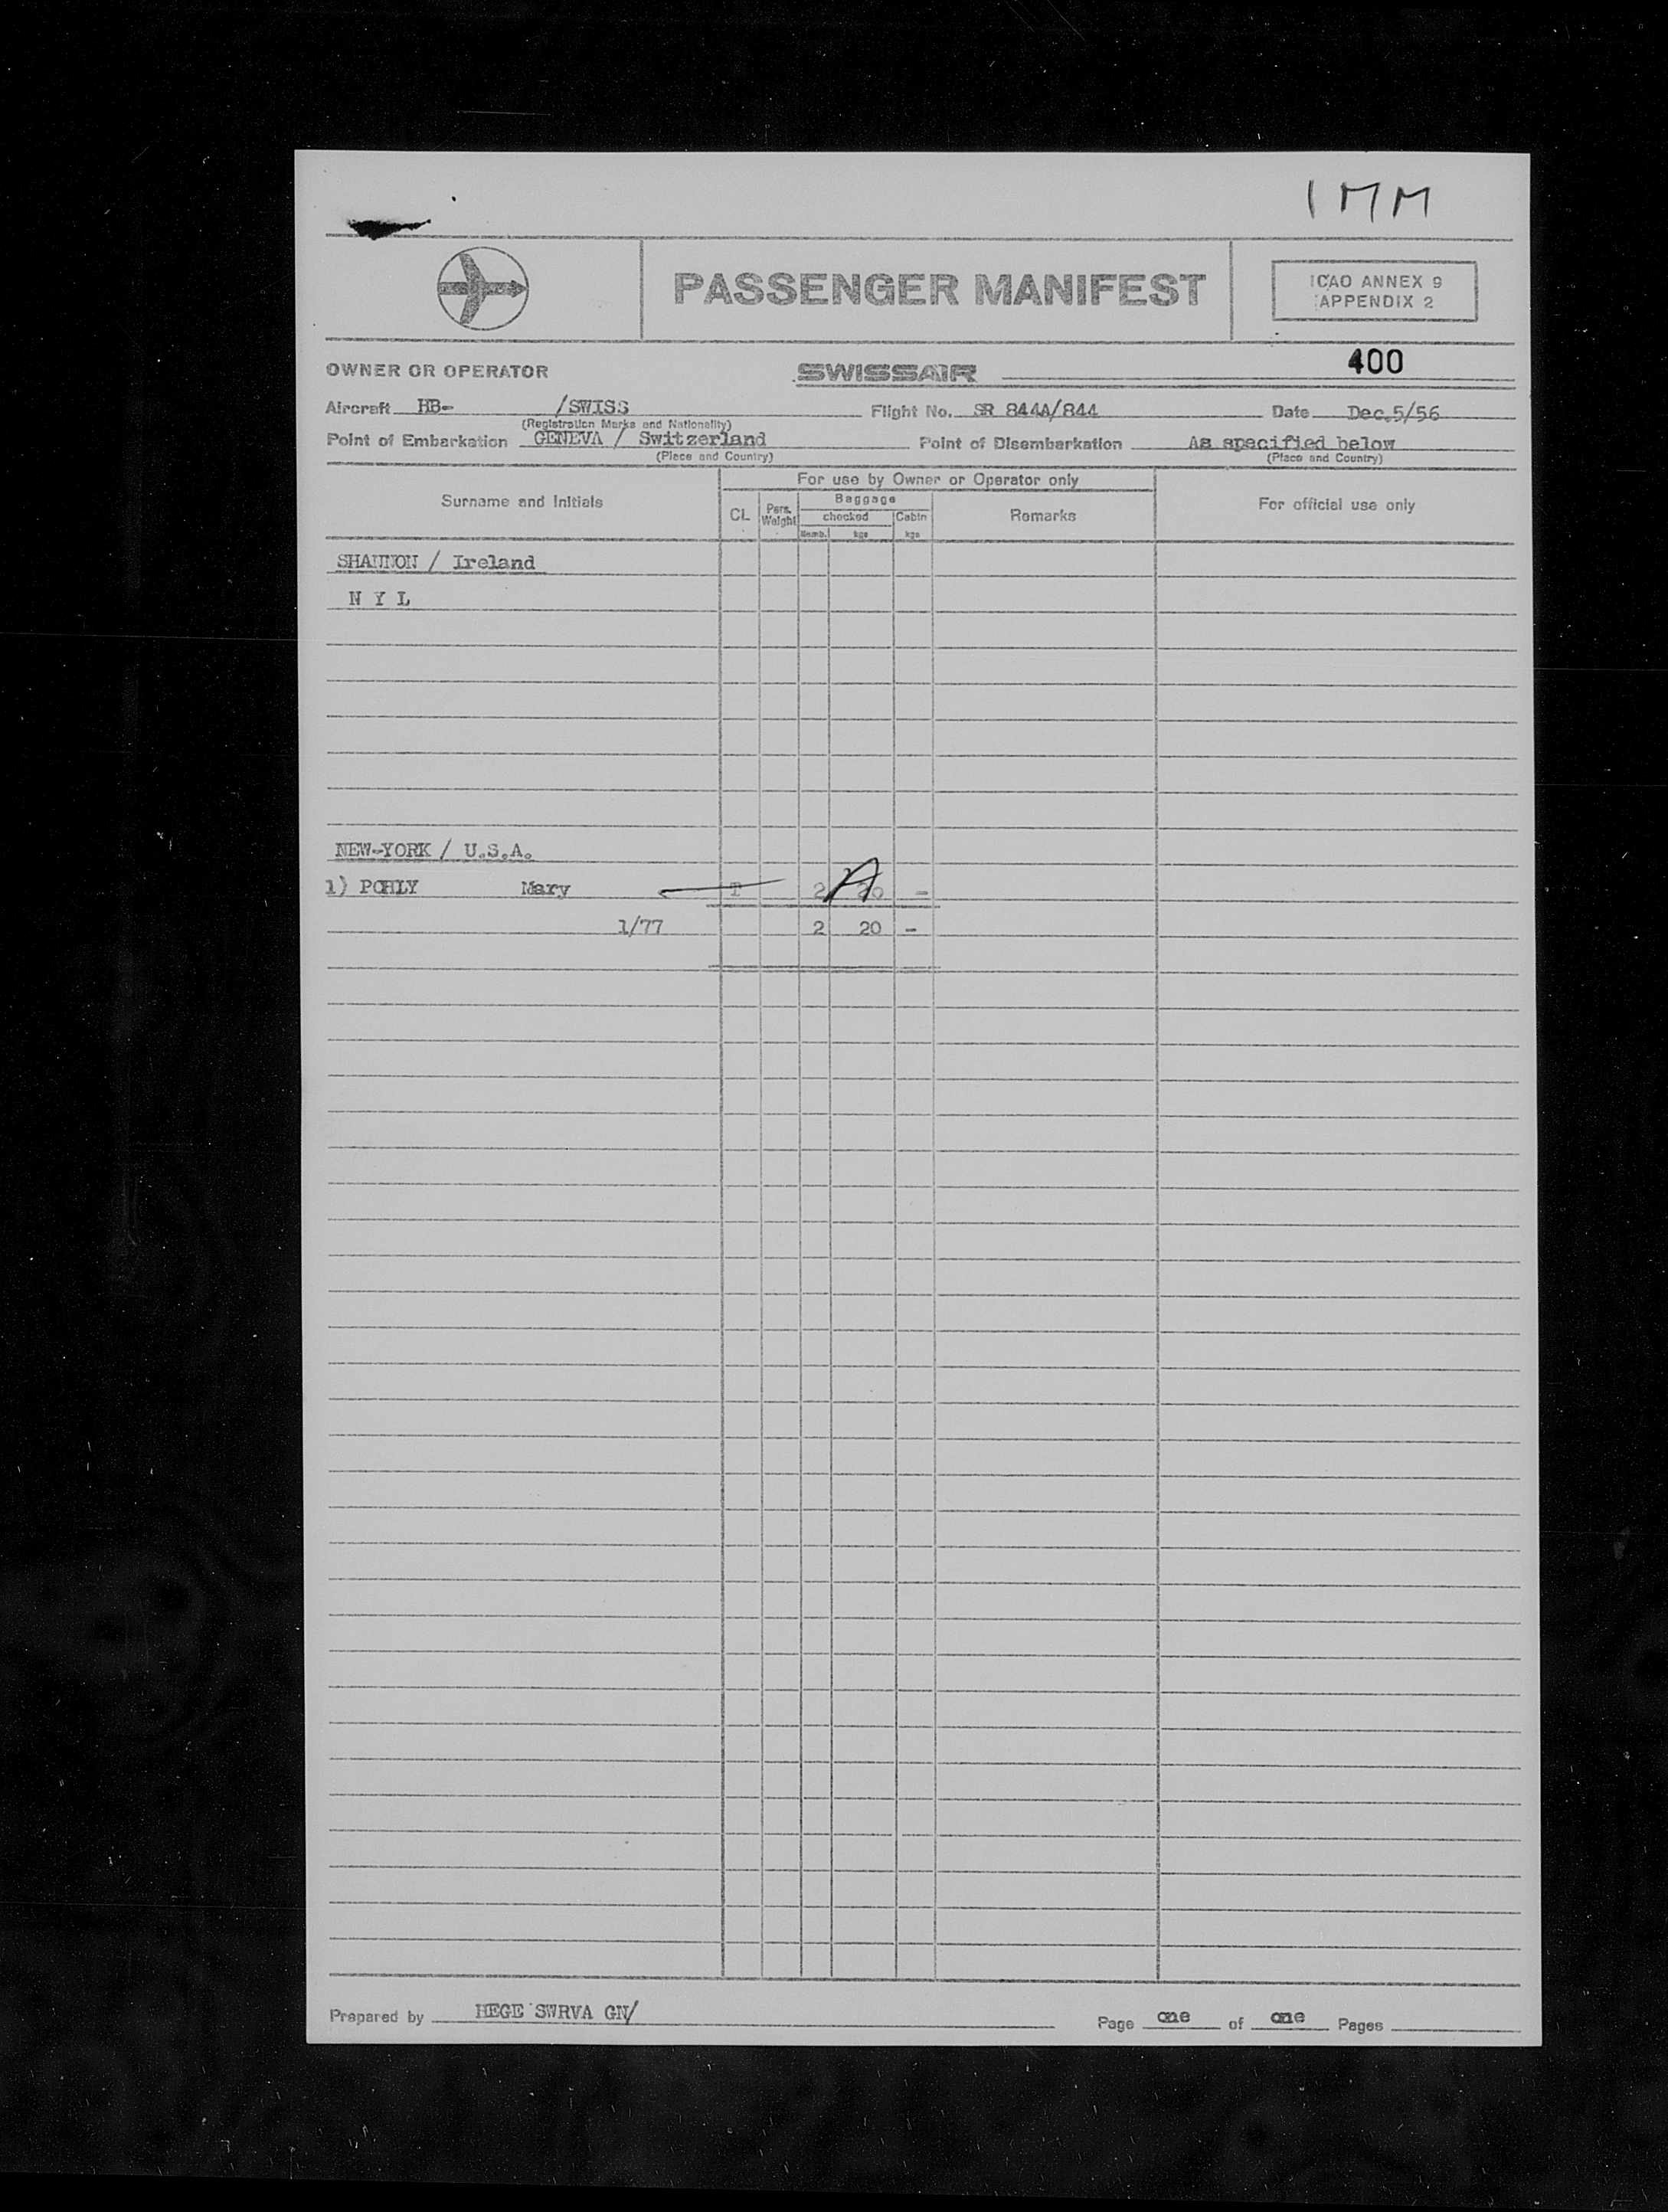 1 MM
PASSENGER MANIFEST
ICAO ANNEX 9
APPENDIX 2
400
OWNER OR OPERATOR SWISSAIR
Aircraft HB- /SWISS Flight No. SR 844A/844 Date Dec.5/56
(Registration Marks and Nationality)
Point of Embarkation GENEVA / Switzerland Point of Disembarkation As specified below
(Place and Country) (Place and Country)
For use by Owner or Operator only
Surname and Initials CL Pers. Weight Baggage Remarks For official use only
checked Cabin
Numb. kgs kgs
SHANNON / Ireland
N I L
NEW-YORK / U.S.A.
1) POHLY Mary T 2 20 -
1/77 2 20 -
Prepared by HEGE SWRVA GN/ Page one of one Pages